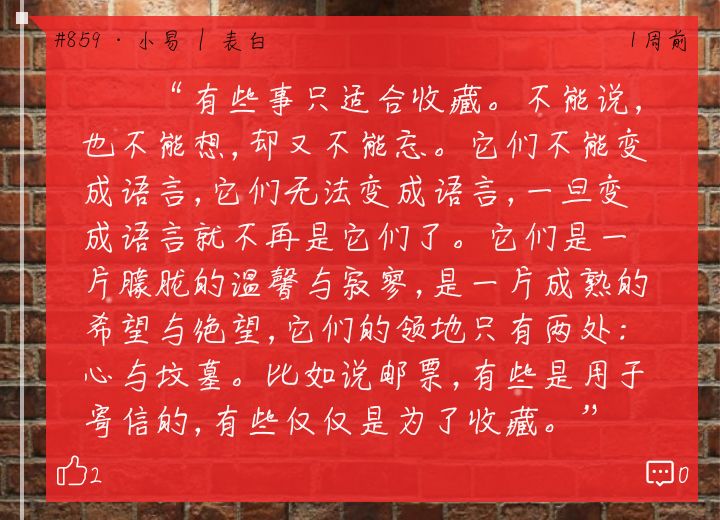 #859 · 小易 | 表白
1周前
“有些事只适合收藏。不能说,
也不能想,却又不能忘。它们不能变
成语言,它们无法变成语言,一旦变
成语言就不再是它们了。它们是一
片朦胧的温馨与寂寥,是一片成熟的
希望与绝望,它们的领地只有两处:
心与坟墓。比如说邮票,有些是用于
寄信的,有些仅仅是为了收藏。”
2
0